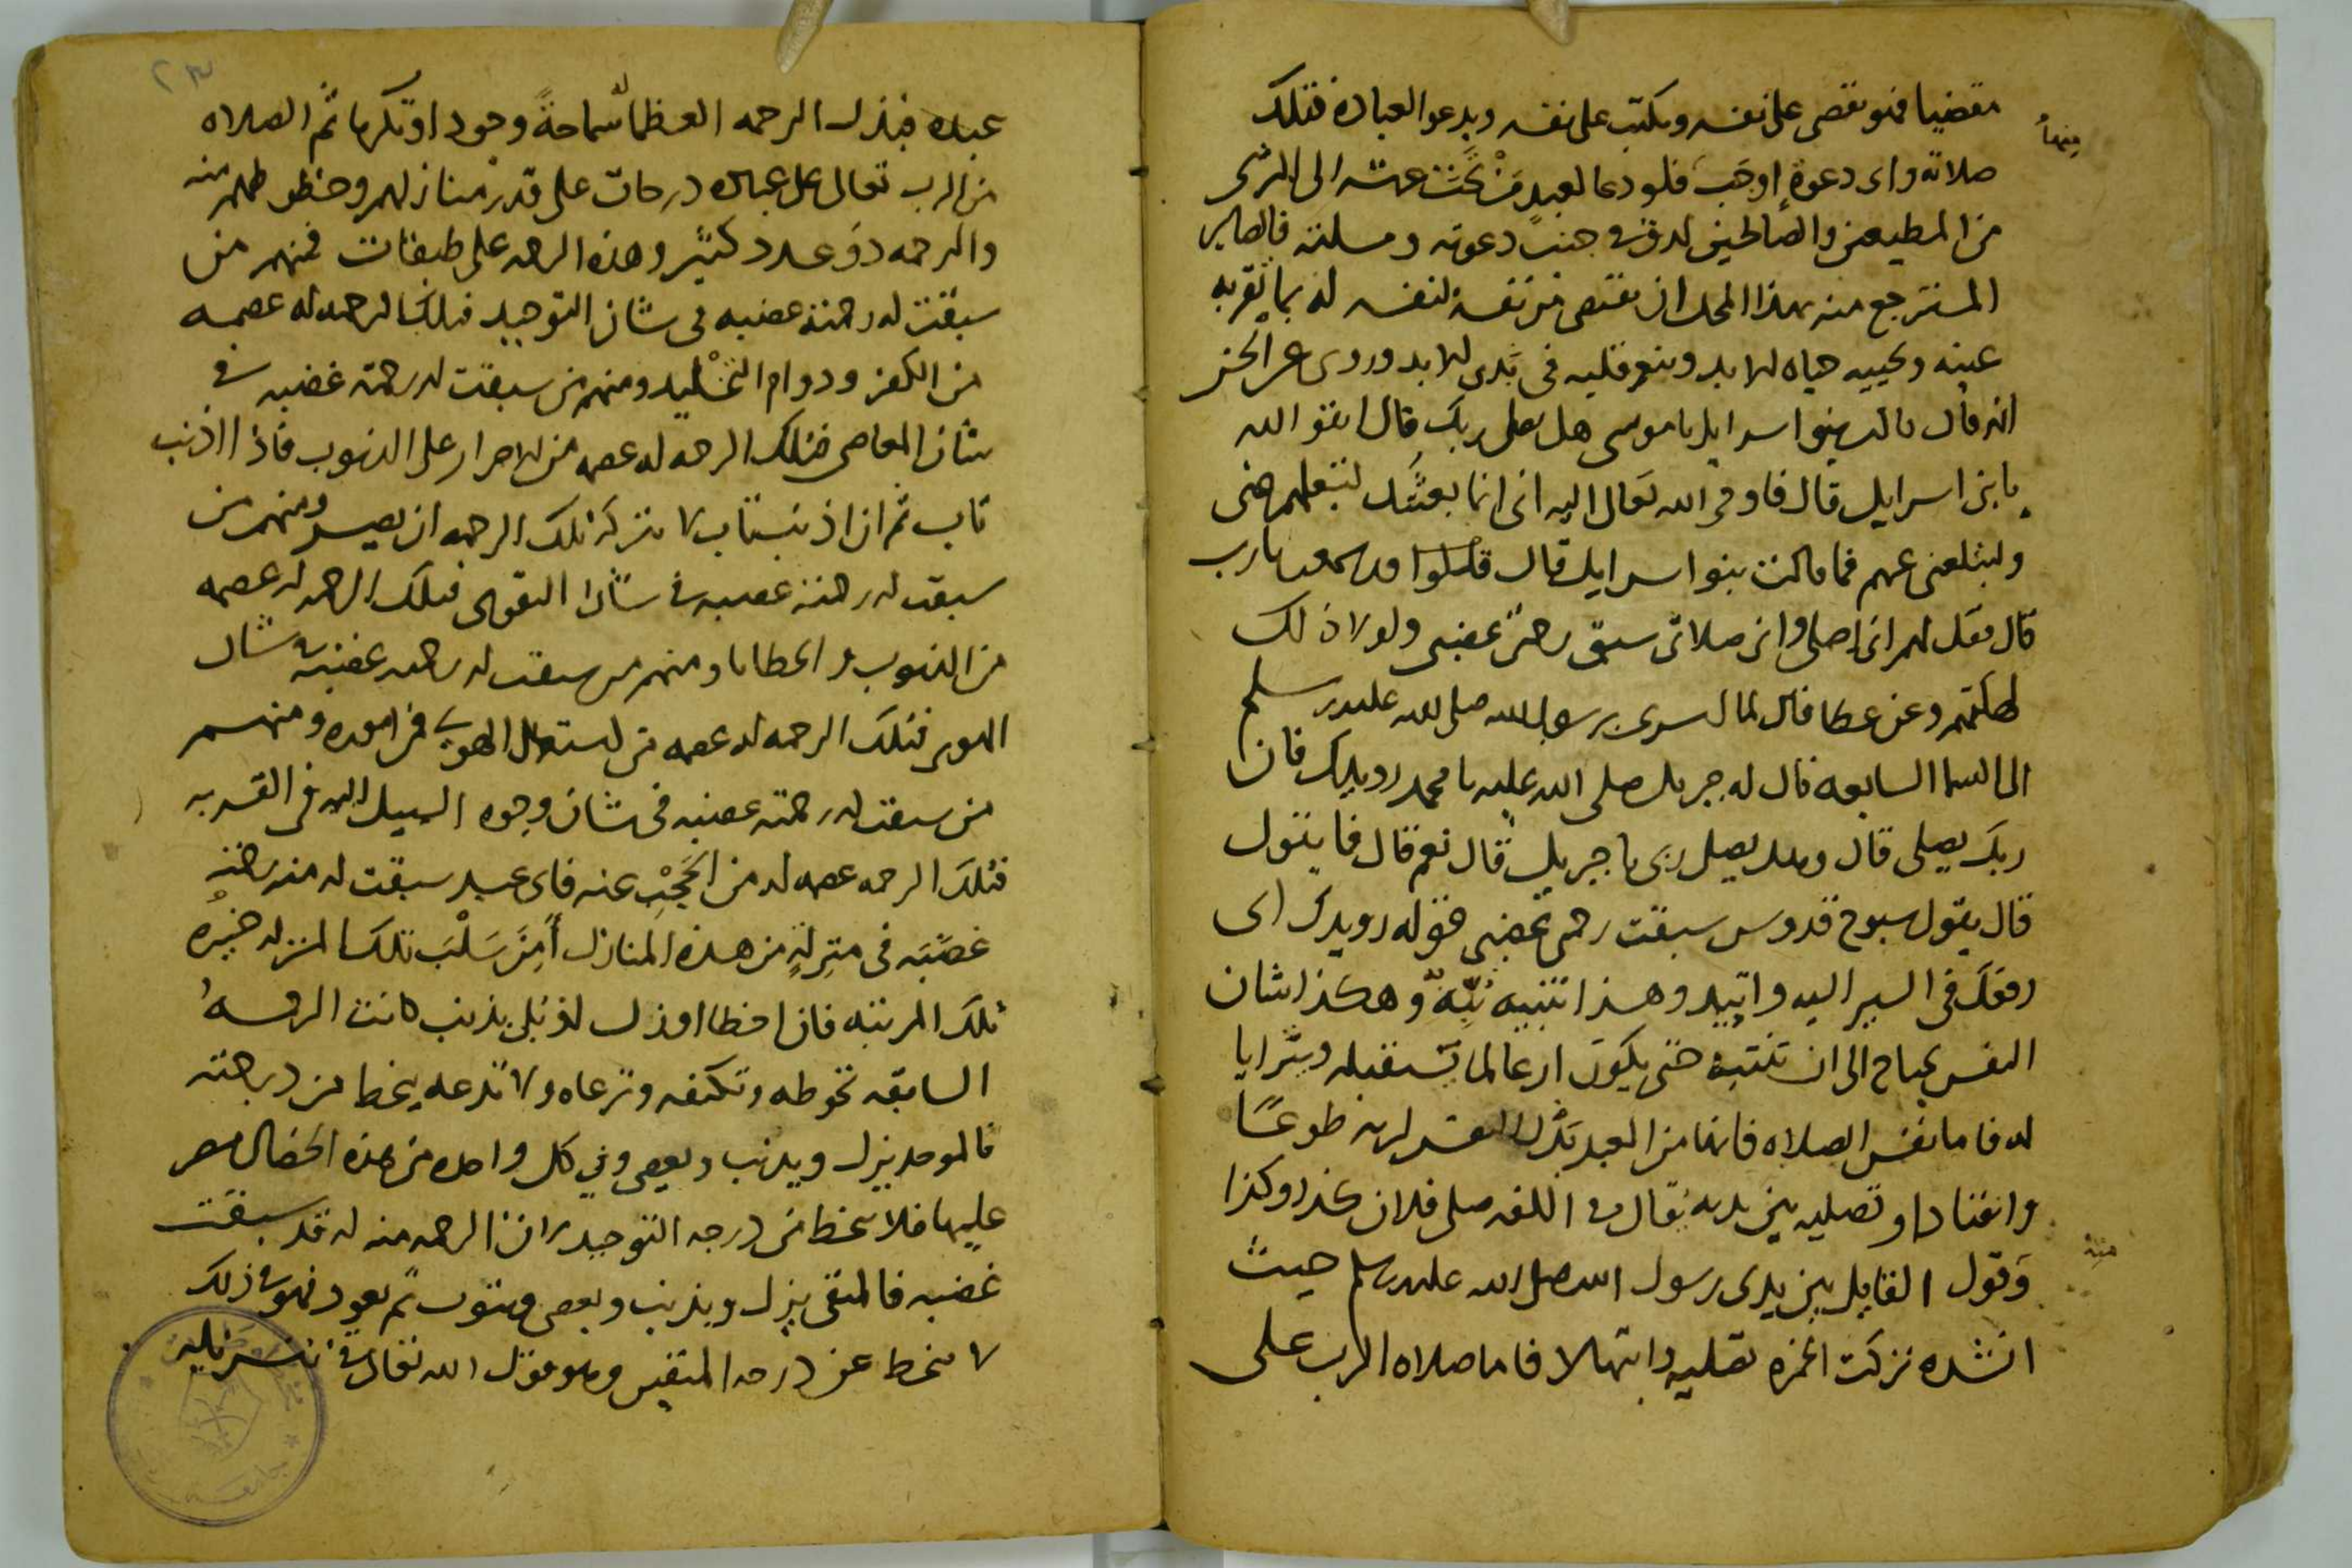 مقضيا فهو يقضى على نفسه ويكتب على نفسه ويدعو العباده فتلك
صلاته واى دعوة اوجب فلو دعا لعبد من تحت عرشه الى الثرى
من المطيعين والصالحين لدق فى جنب دعوته ومسلته فالصاير
المسترجع منه بهذا المحل ان يقتص من نفسه لنفسه له بما يقربه
عينه ويحييه حياه الابد وينعم قلبه فى الابد وروى عن الحسن
انه قال قالت بنوا اسرايل يا موسى هل يصلى ربك قال اتقو الله
يا بنى اسرايل قال فاوحى الله تعالى اليه انى انما بعثتك لتبلغهم عنى
ولتبلغنى عنهم فما قالت بنوا اسرايل قال قالوا ما قد سمعت يا رب
قال فقل لهم انى اصلى وان صلاتى سبق رحمتى غضبى ولولا ذلك
لهلكتم وعن عطا قال لما اسرى برسول الله صلى الله عليه وسلم
الى السما السابعه قال له جبريل صلى الله عليه يا محمد رويدك فان
ربك يصلى قال وهل يصلى ربى يا جبريل قال نعم قال فما يقول
قال يقول سبوح قدوس سبقت رحمتى غضبى فقوله رويدك اى
رفقك فى السير اليه واتيد وهذا تنبيه نبه وهكذا شان
النفس يحتاج الى ان تنتبه حتى يكون
له فاما نفس الصلاه فانما من العبد بذل النفس لربه طوعا
وانقيادا وتصليه بين يديه يقال فى اللغه صلى فلان كذا وكذا
وقول القايل بين يدى رسول الله صلى الله عليه وسلم حيث
انشده تركت الخمره تصليه وابتهالا فاما صلاه الرب على
عبده فبذل الرحمه العظما سماحة وجودا وتكرما ثم الصلاه
من الرب تعالى على عباده درجات على قدر منازلهم وحظوظهم منه
والرحمه ذو عدد كثير وهذه الرحمه على طبقات فمنهم من
سبقت له رحمته غضبه فى شان التوحيد فتلك الرحمه له عصمه
من الكفر ودوام التخليد ومنهم من سبقت له رحمته غضبه فى
شان المعاصى فتلك الرحمه له عصمه من الاصرار على الذنوب فاذا اذنب
تاب ثم ان اذنب تاب لا تتركه تلك الرحمه ان يصر ومنهم من
سبقت له رحمته غضبه فى شان التقوى فتلك الرحمه له عصمه
من الذنوب والخطايا ومنهم من سبقت له رحمته غضبه فى شان
الهوى فتلك الرحمه له عصمه من استعمال الهوى فى اموره ومنهم
من سبقت له رحمته غضبه فى شان وجوه السبيل اليه فى القربه
فتلك الرحمه عصمه له من الحجب عنه فاى عبد سبقت له منه رحمته
غضبه فى منزلة من هذه المنازل امن سلب تلك المنزله
تلك المرتبه فان اخطا او زل او بلى بذنب كانت الرحمه
السابقه تحوطه وتكنفه وترعاه ولا تدعه ينحط من درجته
فالموحد يزل ويذنب ويعصى وفى كل واحده من هذه الخصال مصر
عليها فلا ينحط من درجه التوحيد لان الرحمه منه له قد سبقت
غضبه فالمتقى يزل ويذنب ويعصى ويتوب ثم يعود فهو فى ذلك
لا ينحط عن درجه المتقين وهو قول الله تعالى فى تنزيله